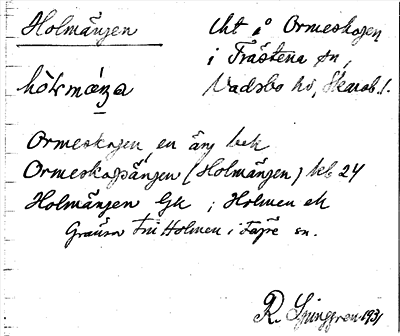 Holmängen
Uht å Ormeskogen
i Trästena sn,
hòlmæŋa
Vadsbo hd, Skarab.l.
Ormeskogen, en äng bek
Ormeskogsängen (Holmängen) kb 24
Holmängen Gk ; Holmen ek
Gränsa till Holmen i Fägre sn.
R. Ljunggren 1931